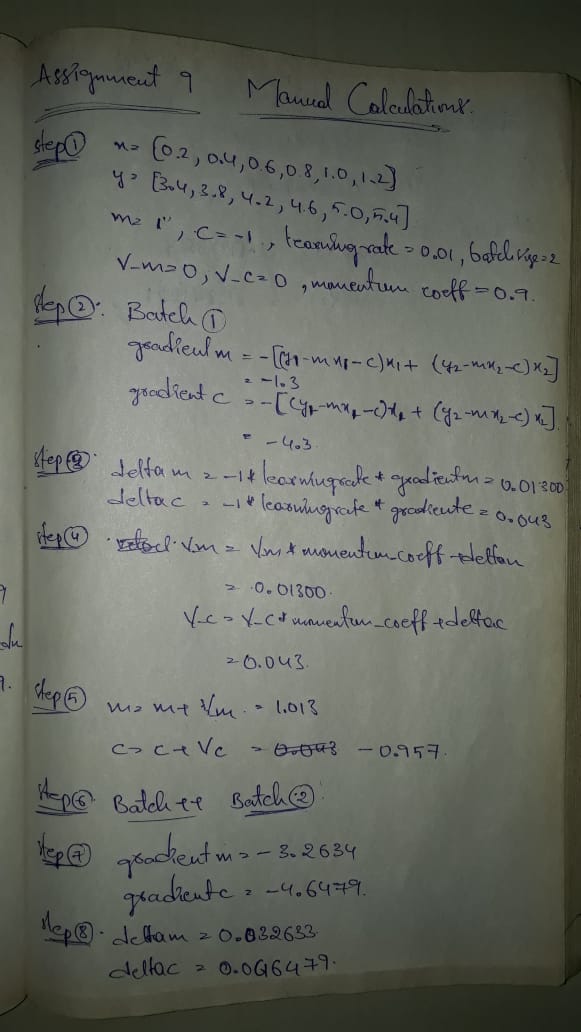 Assignment 9 Manual Calculations.
Step ① x = [0.2, 0.4, 0.6, 0.8, 1.0, 1.2]
y = [3.4, 3.8, 4.2, 4.6, 5.0, 5.4]
m = 1, C = -1, learning-rate = 0.01, batch size = 2
V-m = 0, V-C = 0, momentum coeff = 0.9.
Step ②: Batch ①
gradient m = -[(y1-mx1-c)x1 + (y2-mx2-c)x2]
= -1.3
gradient c = -[(y1-mx1-c)x1 + (y2-mx2-c)x2]
= -4.3
Step ③ delta m = -1 * learningrate * gradientm = 0.01300
delta c = -1 * learningrate * gradientc = 0.043
Step ④ Vm = Vm * momentum-coeff + deltam
= 0.01300.
V-c = V-c * momentum_coeff + deltac
= 0.043.
Step ⑤ m = m + Vm. = 1.013
C = C + Vc = 0.043 -0.957.
Step ⑥ Batch ++ Batch ②:
Step ⑦ gradient m = -3.2634
gradient c = -4.6479.
Step ⑧. deltam = 0.032633
deltac = 0.046479.